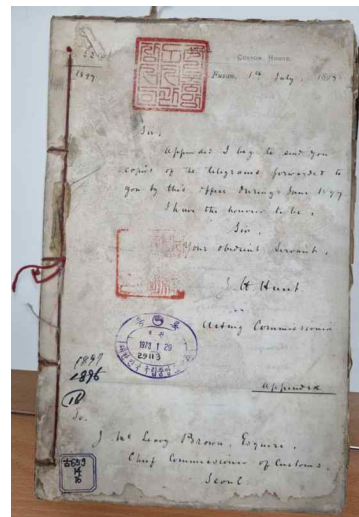 1897
CUSTOM HOUSE,
Fusan, 1st July, 1897
Sir,
Appended I beg to send you
copies of the telegrams forwarded to
you by this office during June 1897
I have the honour to be,
Sir,
Your obedient Servant,
J H Hunt
Acting Commissioner
1973 1 29
29113
1897
1896
Appendix
To.
J Mc Leavy Brown, Esquire,
Chief Commissioner of Customs,
Seoul